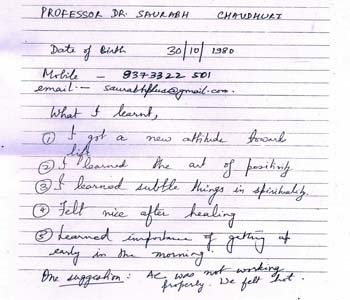 PROFESSOR DR. SAURABH CHAUDHURI
Date of Birth 30/10/1980
Mobile - 9373322 501
email:- saurabhplus@gmail.com.
What I learnt,
① I got a new attitude toward
life
② I learned the art of positivity
③ I learned subtle things in spirituality.
④ Felt nice after healing
⑤ Learned importance of getting up
early in the morning.
One suggestion: AC was not working
properly. We felt hot.